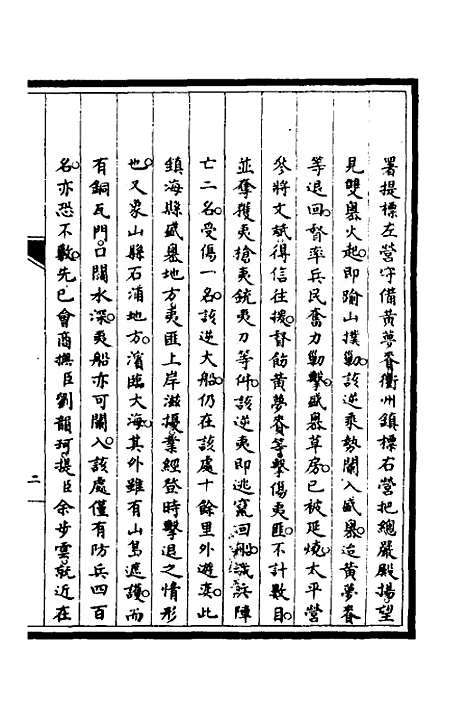 署提標左營守備黃夢賚衢州鎮標右營把總嚴殿揚望
見雙嶴火起即踰山撲勦該逆乘勢闖入盛嶴迨黃夢賚
等退回督率兵民奮力勦擊盛嶴草房已被延燒太平營
參將文斌得信往援督飭黃夢賚等擊傷夷匪不計數目
並奪獲夷搶夷銃夷刀等件該逆夷即逃竄回船我兵陣
亡二名受傷一名該逆大船仍在該處十餘里外遊奕此
鎮海縣盛嶴地方夷匪上岸滋擾業經登時擊退之情形
也又象山縣石浦地方濱臨大海其外雖有山島遮護而
有銅瓦門口闊水深夷船亦可闖入該處僅有防兵四百
名亦恐不敷先已會商撫臣劉韻珂提臣余步雲就近在
二